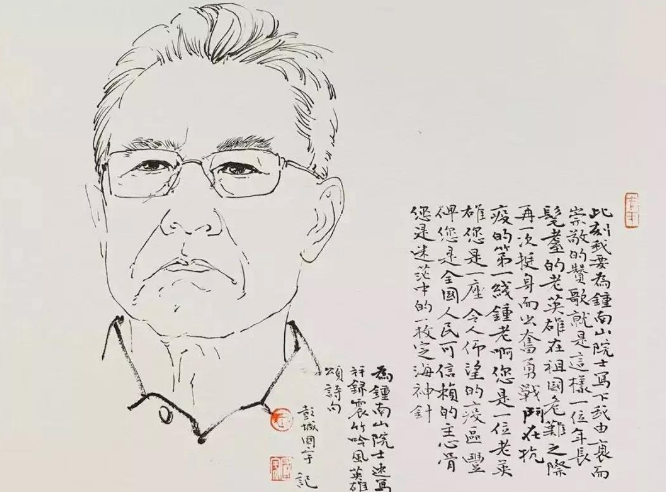 此刻我要為鍾南山院士寫下我由衷而
崇敬的赞歌就是這樣一位年長
髦耋的老英雄在祖國危難之際
再一次挺身而出奮勇戰鬥在抗
疫的第一線鍾老啊您是一位老英
雄您是一座令人仰望的疫區豐
碑您是全國人民可信賴的主心骨
您是迷茫中的一枚定海神針
為鍾南山院士速寫
并録震竹吟風英雄
頌詩句
彭城 記